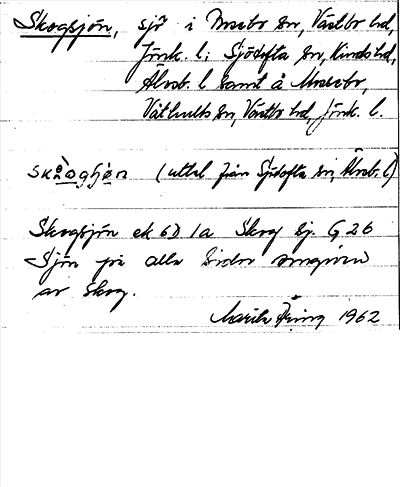 Skogsjön, sjö i Mosebo sn, Västbo hd,
Jönk. l; Sjötofta sn, Kinds hd,
Älvsb. l samt å Mosebo,
Våthults sn, Västbo hd, Jönk. l.
(uttal från Sjötofta sn, Älvsb. l)
Skogsjön ek 6D 1a Skog sj. G 26
Sjön på alla sidor omgiven
av skog.
Marita 1962